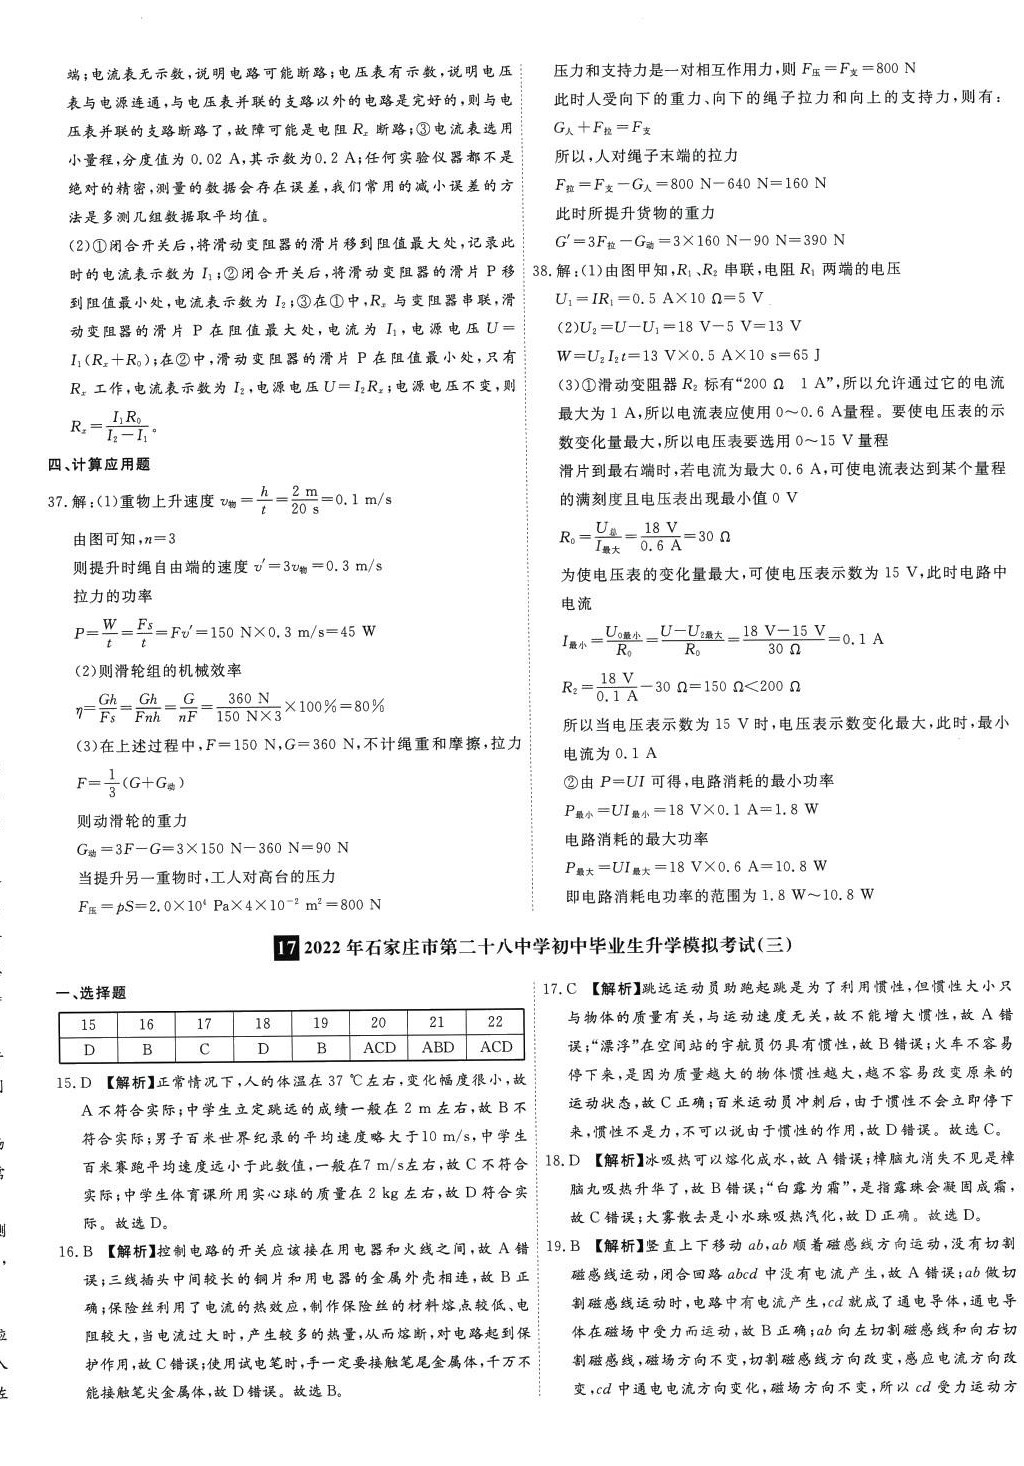 端;电流表无示数,说明电路可能断路;电压表有示数,说明电压
表与电源连通,与电压表并联的支路以外的电路是完好的,则与电
压表并联的支路断路了,故障可能是电阻 Rx 断路;③电流表选用
小量程,分度值为 0.02 A,其示数为0.2 A;任何实验仪器都不是
绝对的精密,测量的数据会存在误差,我们常用的减小误差的方
法是多测几组数据取平均值。
(2)①闭合开关后,将滑动变阻器的滑片移到阻值最大处,记录此
时的电流表示数为 I₁;②闭合开关后,将滑动变阻器的滑片 P 移
到阻值最小处,电流表示数为 I₂;③在①中,Rx 与变阻器串联,滑
动变阻器的滑片 P 在阻值最大处,电流为 I₁,电源电压 U=
I₁(Rx+R₀);在②中,滑动变阻器的滑片 P 在阻值最小处,只有
Rx 工作,电流表示数为 I₂,电源电压 U=I₂Rx;电源电压不变,则
Rx=I₁R₀/(I₂-I₁)。
四、计算应用题
37.解:(1)重物上升速度 v物=h/t=2 m/20 s=0.1 m/s
由图可知,n=3
则提升时绳自由端的速度 v′=3v物=0.3 m/s
拉力的功率
P=W/t=Fs/t=Fv′=150 N×0.3 m/s=45 W
(2)则滑轮组的机械效率
η=Gh/Fs=Gh/Fnh=G/nF=360 N/(150 N×3)×100%=80%
(3)在上述过程中,F=150 N,G=360 N,不计绳重和摩擦,拉力
F=1/3(G+G动)
则动滑轮的重力
G动=3F-G=3×150 N-360 N=90 N
当提升另一重物时,工人对高台的压力
F压=pS=2.0×10⁴ Pa×4×10⁻² m²=800 N
压力和支持力是一对相互作用力,则 F压=F支=800 N
此时人受向下的重力、向下的绳子拉力和向上的支持力,则有:
G人+F拉=F支
所以,人对绳子末端的拉力
F拉=F支-G人=800 N-640 N=160 N
此时所提升货物的重力
G′=3F拉-G动=3×160 N-90 N=390 N
38.解:(1)由图甲知,R₁、R₂ 串联,电阻 R₁ 两端的电压
U₁=IR₁=0.5 A×10 Ω=5 V
(2)U₂=U-U₁=18 V-5 V=13 V
W=U₂I₂t=13 V×0.5 A×10 s=65 J
(3)①滑动变阻器 R₂ 标有“200 Ω 1 A”,所以允许通过它的电流
最大为 1 A,所以电流表应使用 0～0.6 A量程。要使电压表的示
数变化量最大,所以电压表要选用 0～15 V 量程
滑片到最右端时,若电流为最大 0.6 A,可使电流表达到某个量程
的满刻度且电压表出现最小值 0 V
R₀=U总/I最大=18 V/0.6 A=30 Ω
为使电压表的变化量最大,可使电压表示数为 15 V,此时电路中
电流
I最小=U₀最小/R₀=(U-U₂最大)/R₀=(18 V-15 V)/30 Ω=0.1 A
R₂=18 V/0.1 A-30 Ω=150 Ω<200 Ω
所以当电压表示数为 15 V 时,电压表示数变化最大,此时,最小
电流为 0.1 A
②由 P=UI 可得,电路消耗的最小功率
P最小=UI最小=18 V×0.1 A=1.8 W
电路消耗的最大功率
P最大=UI最大=18 V×0.6 A=10.8 W
即电路消耗电功率的范围为 1.8 W～10.8 W
17 2022 年石家庄市第二十八中学初中毕业生升学模拟考试(三)
一、选择题
15 16 17 18 19 20 21 22
D B C D B ACD ABD ACD
15.D 【解析】正常情况下,人的体温在 37 ℃左右,变化幅度很小,故
A 不符合实际;中学生立定跳远的成绩一般在 2 m 左右,故 B 不
符合实际;男子百米世界纪录的平均速度略大于10 m/s,中学生
百米赛跑平均速度远小于此数值,一般在7 m/s左右,故 C 不符合
实际;中学生体育课所用实心球的质量在 2 kg 左右,故 D 符合实
际。故选 D。
16.B 【解析】控制电路的开关应该接在用电器和火线之间,故 A 错
误;三线插头中间较长的铜片和用电器的金属外壳相连,故 B 正
确;保险丝利用了电流的热效应,制作保险丝的材料熔点较低、电
阻较大,当电流过大时,产生较多的热量,从而熔断,对电路起到保
护作用,故 C 错误;使用试电笔时,手一定要接触笔尾金属体,千万不
能接触笔尖金属体,故 D 错误。故选 B。
17.C 【解析】跳远运动员助跑起跳是为了利用惯性,但惯性大小只
与物体的质量有关,与运动速度无关,故不能增大惯性,故 A 错
误;“漂浮”在空间站的宇航员仍具有惯性,故 B 错误;火车不容易
停下来,是因为质量越大的物体惯性越大,越不容易改变原来的
运动状态,故 C 正确;百米运动员冲刺后,由于惯性不会立即停下
来,惯性不是力,不可以说由于惯性的作用,故 D 错误。故选 C。
18.D 【解析】冰吸热可以熔化成水,故 A 错误;樟脑丸消失不见是樟
脑丸吸热升华了,故 B 错误;“白露为霜”,是指露珠会凝固成霜,
故 C 错误;大雾散去是小水珠吸热汽化,故 D 正确。故选 D。
19.B 【解析】竖直上下移动 ab,ab 顺着磁感线方向运动,没有切割
磁感线运动,闭合回路 abcd 中没有电流产生,故 A 错误;ab 做切
割磁感线运动时,电路中有电流产生,cd 就成了通电导体,通电导
体在磁场中受力而运动,故 B 正确;ab 向左切割磁感线和向右切
割磁感线,磁场方向不变,切割磁感线方向改变,感应电流方向改
变,cd 中通电电流方向变化,磁场方向不变,所以 cd 受力运动方